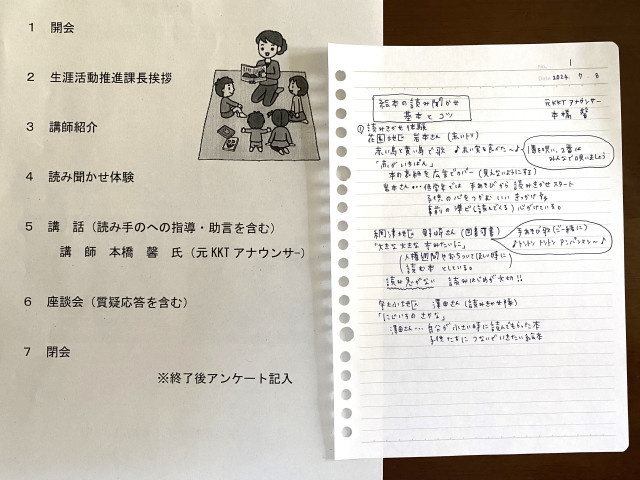 1 開会
2 生涯活動推進課長挨拶
3 講師紹介
4 読み聞かせ体験
5 講　話（読み手のへの指導・助言を含む）
講　師　本橋　馨　氏（元KKTアナウンサー）
6 座談会（質疑応答を含む）
7 閉会
※終了後アンケート記入
1
Date 2024. 7. 8
絵本の読み聞かせ
基本とコツ
元KKTアナウンサー
本橋 馨
① 読みきかせ体験
花園地区 岩本さん（赤いトリ）
赤い鳥と青い鳥で歌 ♪赤い実を食べた〜♪
1番を唄い、2番は
みんなで唄いましょう
本の表紙を広告でカバー（見えないようにする）
岩本さん…低学年では 手あそびから 読みきかせスタート
子供の心をつかむ いい きっかけ
事前の準ビ（読んでくる）心がけている。
網津地区 野崎さん（図書司書）
手あそび歌（ご一緒に）
♪トントントントン アンパンマン〜♪
「大きな大きな 木みたいに」
人権週間やおちついてほしい時に
読む本 としている。
読み急がない 読みはじめが大切!!
澤田さん（読みきかせ隊）
「にじいろの さかな」
澤田さん…自分が小さい時に読んでもらった本
子供たちに つないでいきたい絵本